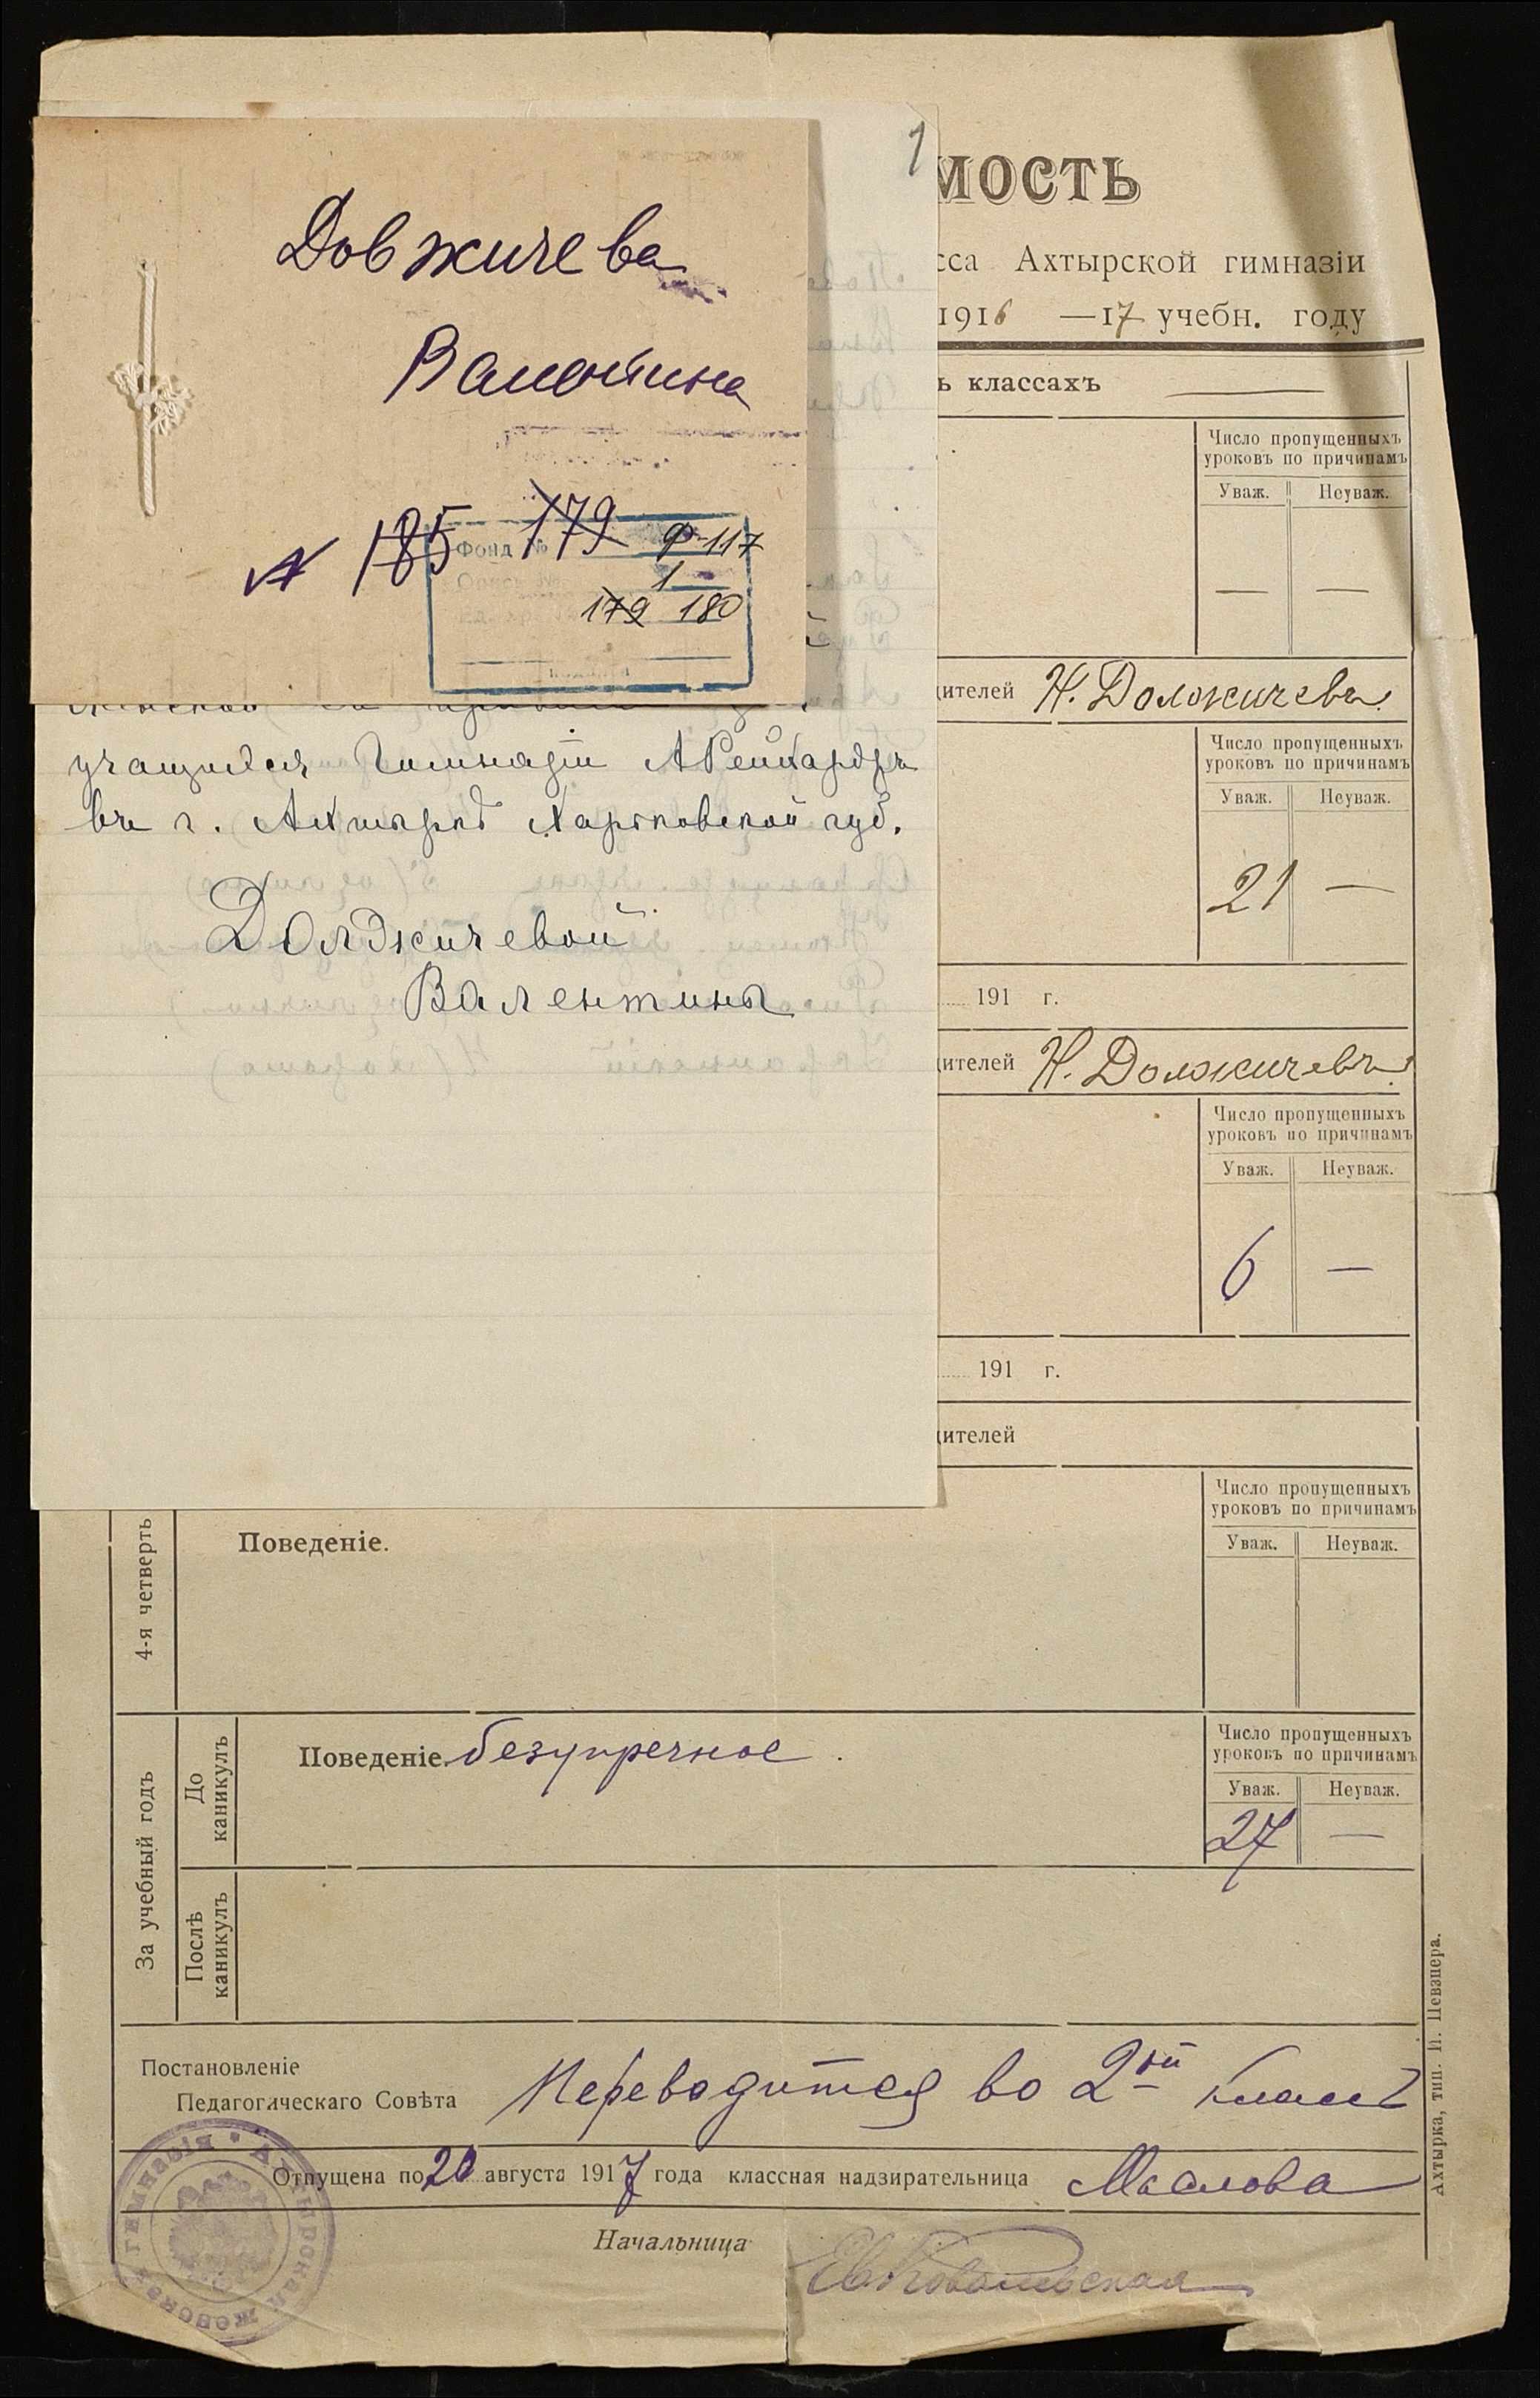 Довжичева
Валентина
№ 185 179
Фонд № Ф-117
1
179 180
1
МОСТЬ
сса Ахтырской гимназіи
1916 —17 учебн. году
ъ классахъ —
Число пропущенныхъ
уроковъ по причинамъ
Уваж. Неуваж.
— —
дителей Н. Должичевъ
Число пропущенныхъ
уроковъ по причинамъ
Уваж. Неуваж.
21 —
191 г.
дителей Н. Должичевъ
Число пропущенныхъ
уроковъ по причинамъ
Уваж. Неуваж.
6 —
191 г.
дителей
учащихся Гимназіи А Рейнхардъ
въ г. Ахтыркѣ Харьковской губ.
Должичевой
Валентины
4-я четверть
Поведеніе.
Число пропущенныхъ
уроковъ по причинамъ
Уваж. Неуваж.
За учебный годъ
До каникулъ
Поведеніе. безупречное.
Число пропущенныхъ
уроковъ по причинамъ
Уваж. Неуваж.
27 —
Послѣ каникулъ
Постановленіе
Педагогическаго Совѣта Переводится во 2ой классъ
Отпущена по 20 августа 1917 года классная надзирательница Маслова
Начальница
Ахтырская женская гимназія
Ахтырка, тип. И. Певзнера.